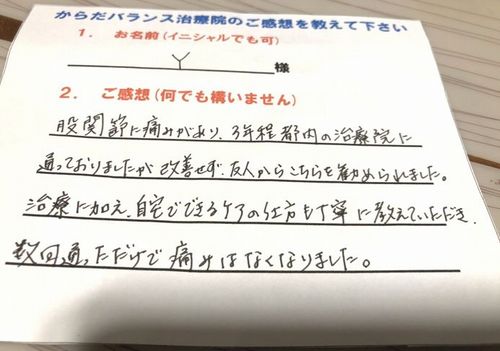 からだバランス治療院のご感想を教えて下さい
1. お名前(イニシャルでも可)
Y 様
2. ご感想(何でも構いません)
股関節に痛みがあり、3年程都内の治療院に
通っておりましたが改善せず、友人からこちらを勧められました。
治療に加え、自宅でできるケアの仕方も丁寧に教えていただき、
数回通っただけで痛みはなくなりました。